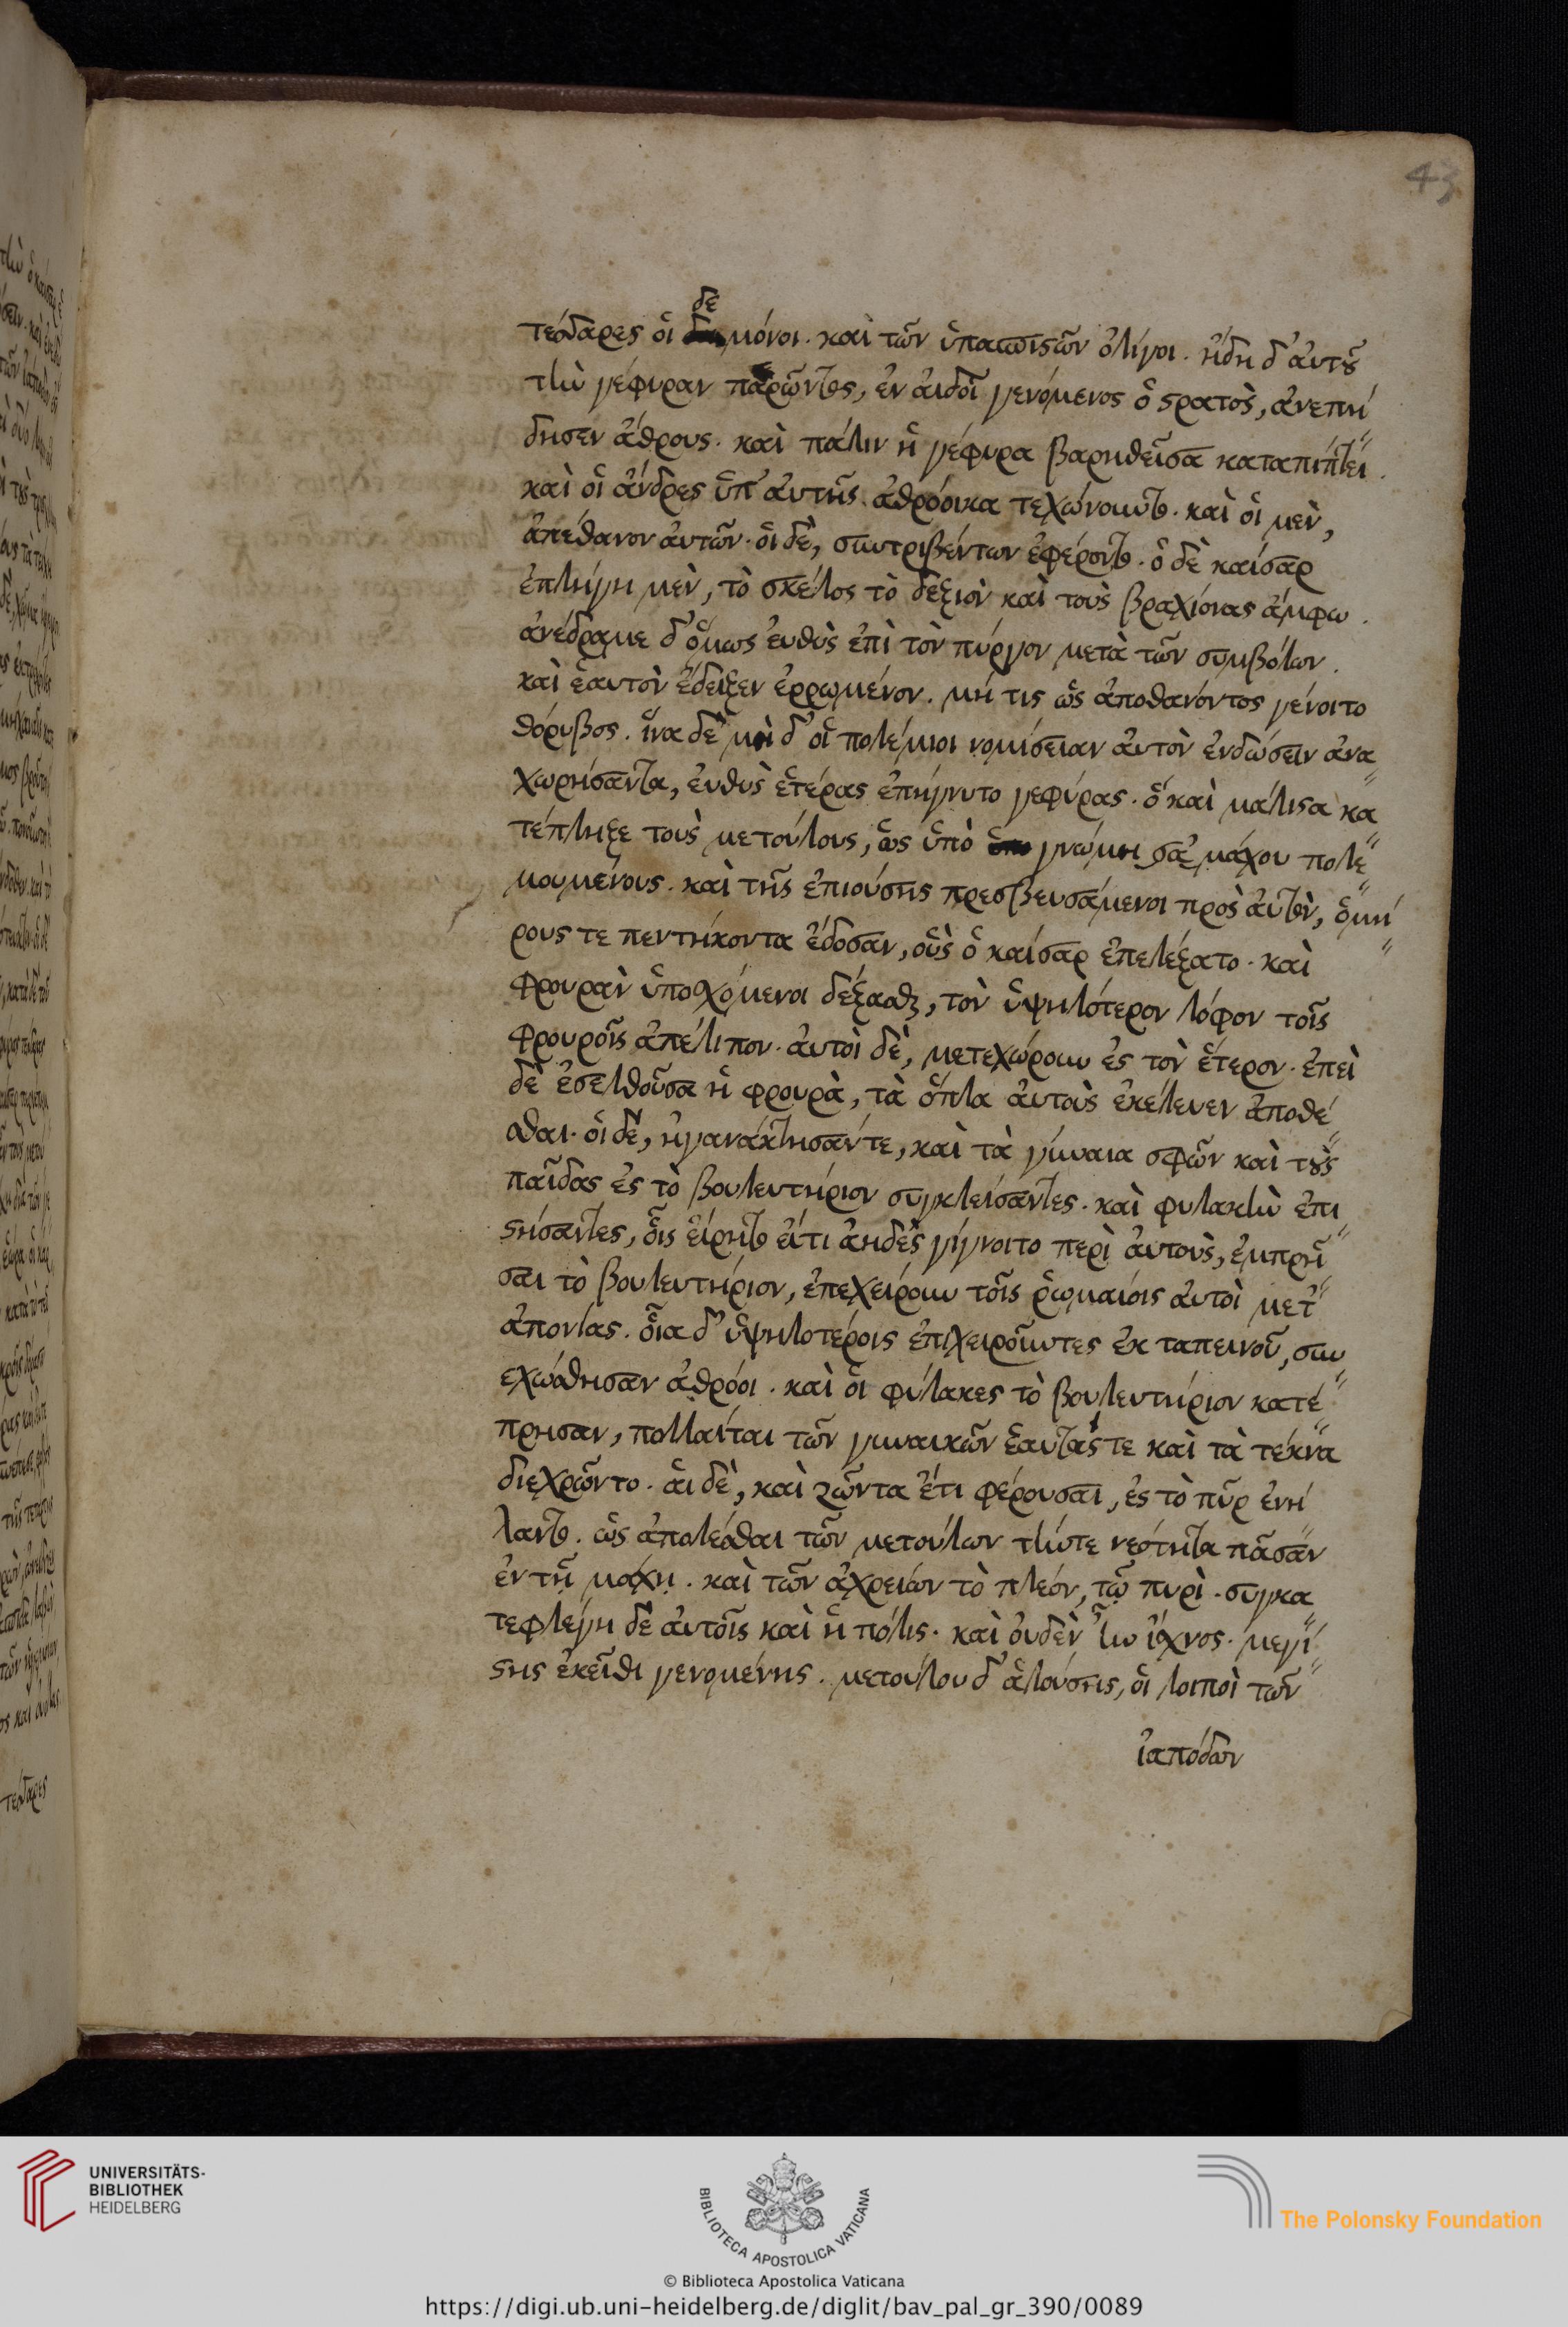 43
δε
τέσσαρες οἱ μόνοι. καὶ τῶν ὑπασπιστῶν ὀλίγοι. ἤδη δ' αὐτοῦ
τὴν γέφυραν περῶντος, ἐν αἰδοῖ γενόμενος ὁ στρατὸς, ἀνεπή
δησεν ἄθρους. καὶ πάλιν ἡ γέφυρα βαρηθεῖσα καταπίπτει.
καὶ οἱ ἄνδρες ὑπ' αὐτῆς ἀθρόοικα τεχώνοιωτο. καὶ οἱ μὲν,
ἀπέθανον αὐτῶν. οἱ δὲ, συντριβέντων ἐφέροντο. ὁ δὲ καίσαρ
ἐπλήγη μὲν, τὸ σκέλος τὸ δεξιὸν καὶ τοὺς βραχίονας ἄμφω.
ἀνέδραμε δ' ὅμως εὐθὺς ἐπὶ τὸν πύργον μετὰ τῶν συμβόλων.
καὶ ἑαυτὸν ἔδειξεν ἐρρωμένον. μή τις ὡς ἀποθανόντος γένοιτο
θόρυβος. ἵνα δὲ μὴ δ' οἱ πολέμιοι νομίσειαν αὐτὸν ἐνδώσειν ἀνα
χωρήσαντα, εὐθὺς ἑτέρας ἐπήγνυτο γεφύρας. ὃ καὶ μάλιστα κα
τέπληξε τοὺς μετούλους, ὡς ὑπὸ γνώμη σαμάχου πολε
μουμένους. καὶ τῆς ἐπιούσης πρεσβευσάμενοι πρὸς αὐτὸν, ὁμή
ρους τε πεντήκοντα ἔδοσαν, οὓς ὁ καίσαρ ἐπελέξατο. καὶ
φρουρὰν ὑποσχόμενοι δέξασθαι, τὸν ὑψηλότερον λόφον τοῖς
φρουροῖς ἀπέλιπον. αὐτοὶ δὲ, μετεχώρουν ἐς τὸν ἕτερον. ἐπεὶ
δὲ ἐσελθοῦσα ἡ φρουρὰ, τὰ ὅπλα αὐτοὺς ἐκέλευεν ἀποθέ
σθαι. οἱ δὲ, ἠγανάκτησάν τε, καὶ τὰ γύναια σφῶν καὶ τοὺς
παῖδας ἐς τὸ βουλευτήριον συγκλείσαντες. καὶ φυλακὴν ἐπι
στήσαντες, οἷς εἴρητο εἴ τι ἀηδὲς γίγνοιτο περὶ αὐτοὺς, ἐμπρῆ
σαι τὸ βουλευτήριον, ἐπεχείρουν τοῖς ῥωμαίοις αὐτοὶ μετ'
ἀπονίας. οἷα δ' ὑψηλοτέροις ἐπιχειροῦντες ἐκ ταπεινοῦ, συν
εχώσθησαν ἀθρόοι. καὶ οἱ φύλακες τὸ βουλευτήριον κατέ
πρησαν, πολλαί ται τῶν γυναικῶν ἑαυτάς τε καὶ τὰ τέκνα
διεχρῶντο. αἱ δὲ, καὶ ζῶντα ἔτι φέρουσαι, ἐς τὸ πῦρ ἐνή
λαντο. ὡς ἀπολέσθαι τῶν μετούλων τήν τε νεότητα πᾶσαν
ἐν τῇ μάχῃ. καὶ τῶν ἀχρείων τὸ πλέον, τῷ πυρὶ. συγκα
τεφλέγη δὲ αὐτοῖς καὶ ἡ πόλις. καὶ οὐδὲν ἦν ἴχνος. μεγί
στης ἐκεῖθι γενομένης. μετούλου δ' ἁλούσης, οἱ λοιποὶ τῶν
ἰαπόδων
UNIVERSITÄTS-
BIBLIOTHEK
HEIDELBERG
BIBLIOTECA APOSTOLICA VATICANA
The Polonsky Foundation
© Biblioteca Apostolica Vaticana
https://digi.ub.uni-heidelberg.de/diglit/bav_pal_gr_390/0089